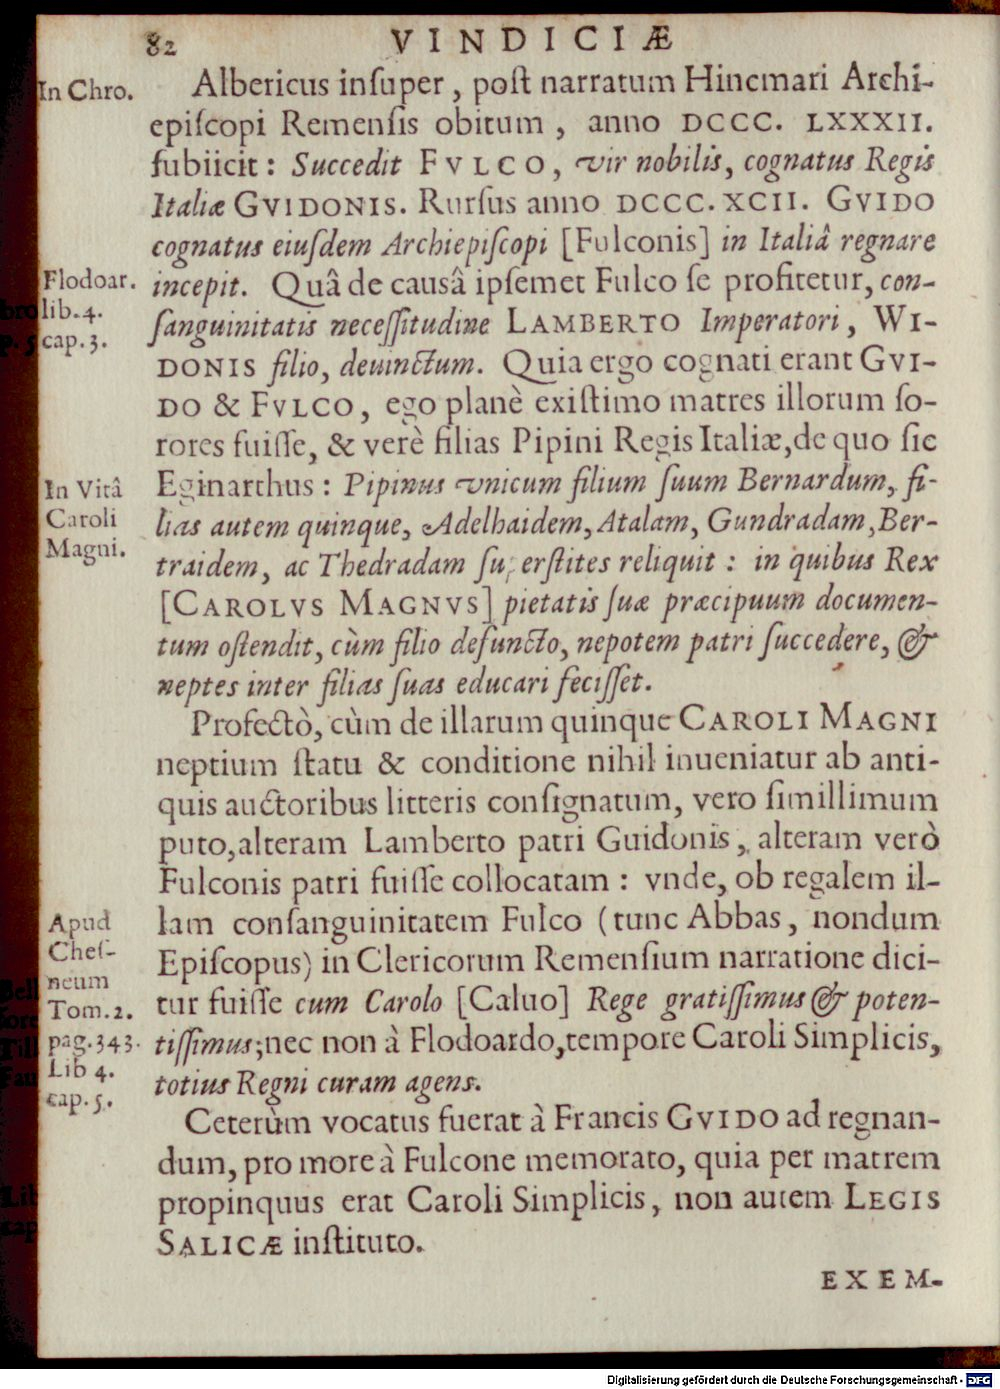 82 VINDICIÆ
In Chro.
Albericus inſuper, poſt narratum Hincmari Archi-
epiſcopi Remenſis obitum, anno DCCC. LXXXII.
ſubiicit: Succedit FVLCO, vir nobilis, cognatus Regis
Italiæ GVIDONIS. Rurſus anno DCCC. XCII. GVIDO
cognatus eiuſdem Archiepiſcopi [Fulconis] in Italiâ regnare
Flodoar.
lib. 4.
cap. 3.
incepit. Quâ de causâ ipſemet Fulco ſe profitetur, con-
ſanguinitatis neceſſitudine LAMBERTO Imperatori, WI-
DONIS filio, deuinctum. Quia ergo cognati erant GVI-
DO & FVLCO, ego planè exiſtimo matres illorum ſo-
rores fuiſſe, & verè filias Pipini Regis Italiæ, de quo ſic
In Vitâ
Caroli
Magni.
Eginarthus: Pipinus vnicum filium ſuum Bernardum, fi-
lias autem quinque, Adelhaidem, Atalam, Gundradam, Ber-
traidem, ac Thedradam ſuperſtites reliquit: in quibus Rex
[CAROLVS MAGNVS] pietatis ſuæ præcipuum documen-
tum oſtendit, cùm filio defuncto, nepotem patri ſuccedere, &
neptes inter filias ſuas educari feciſſet.
Profectò, cùm de illarum quinque CAROLI MAGNI
neptium ſtatu & conditione nihil inueniatur ab anti-
quis auctoribus litteris conſignatum, vero ſimillimum
puto, alteram Lamberto patri Guidonis, alteram verò
Fulconis patri fuiſſe collocatam: vnde, ob regalem il-
Apud
Cheſ-
neum
Tom. 2.
pag. 343.
Lib 4.
cap. 5.
lam conſanguinitatem Fulco (tunc Abbas, nondum
Epiſcopus) in Clericorum Remenſium narratione dici-
tur fuiſſe cum Carolo [Caluo] Rege gratiſſimus & poten-
tiſſimus; nec non à Flodoardo, tempore Caroli Simplicis,
totius Regni curam agens.
Ceterùm vocatus fuerat à Francis GVIDO ad regnan-
dum, pro more à Fulcone memorato, quia per matrem
propinquus erat Caroli Simplicis, non autem LEGIS
SALICÆ inſtituto.
EXEM-
Digitalisierung gefördert durch die Deutsche Forschungsgemeinschaft - DFG